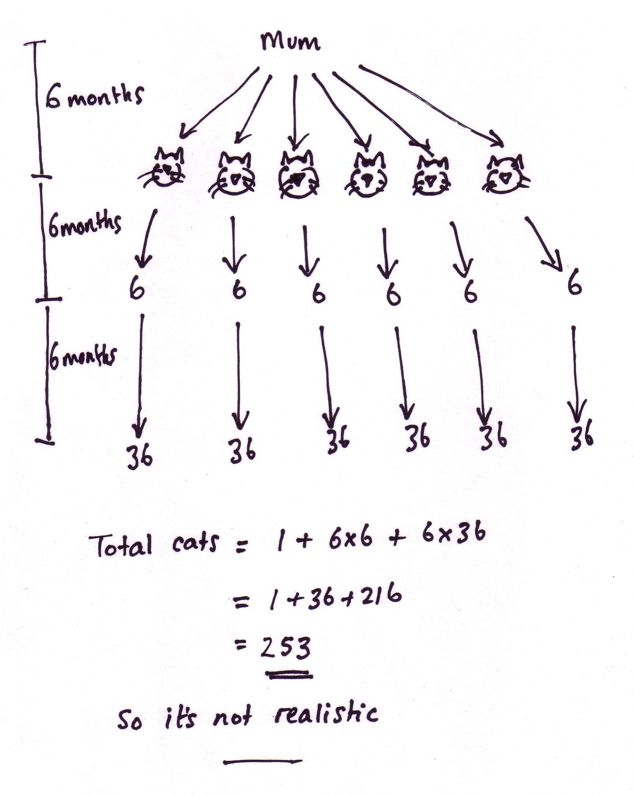 Mum
6 months
6 months
6 6 6 6 6 6
6 months
36 36 36 36 36 36
Total cats = 1 + 6x6 + 6x36
= 1+36+216
= 253
So it's not realistic